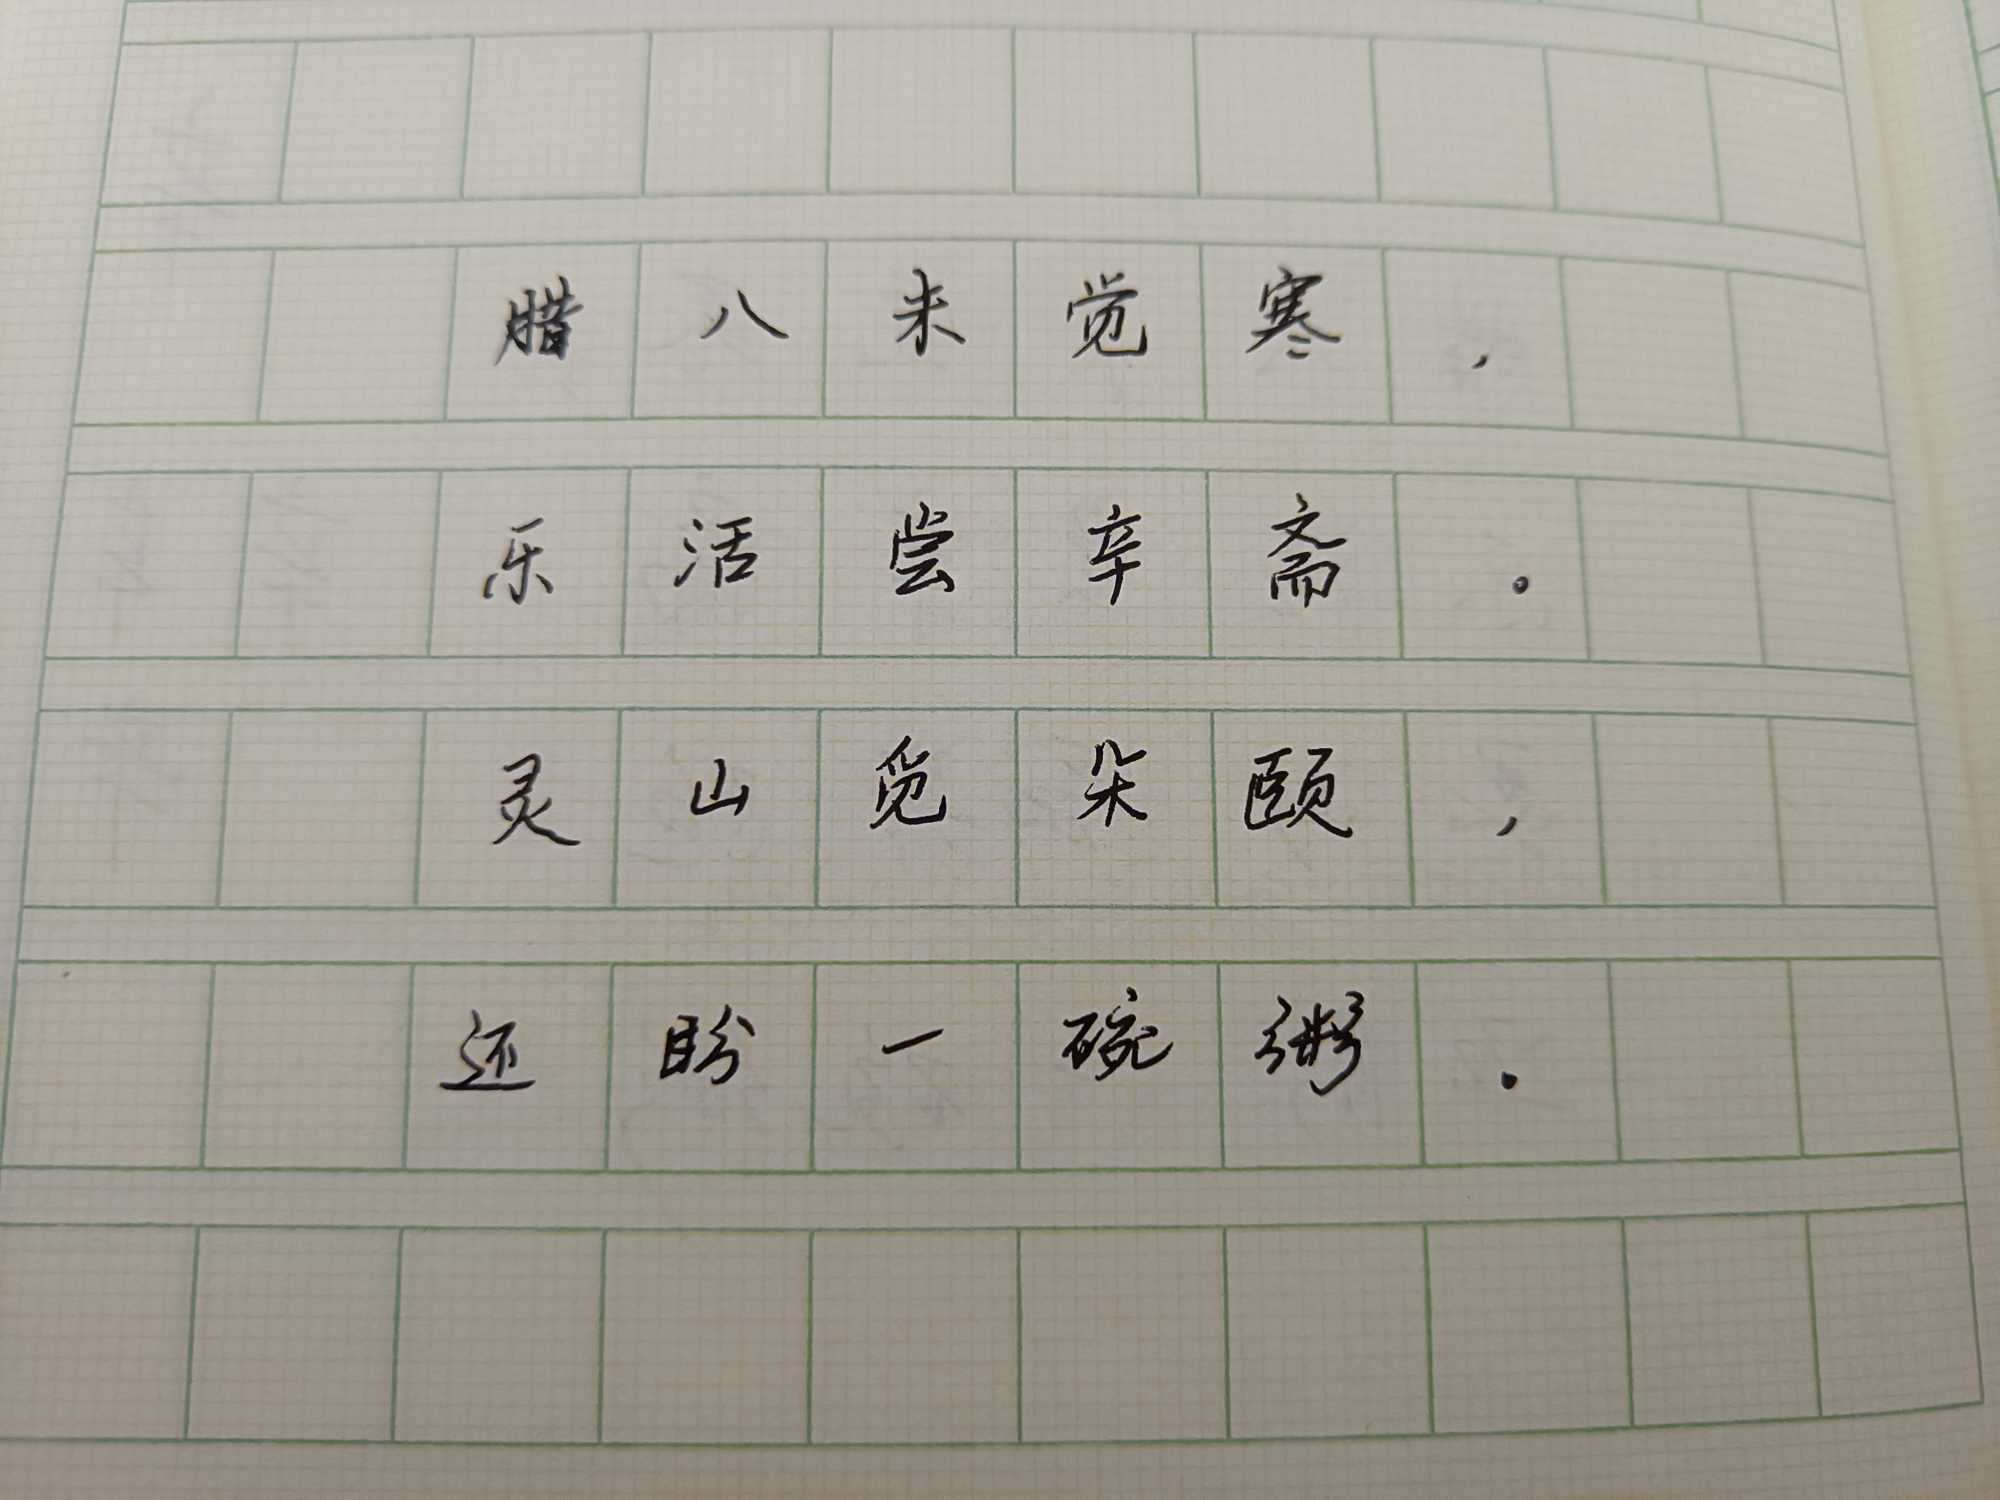 腊八未觉寒，
乐活尝辛斋。
灵山觅朵颐，
还盼一碗粥.